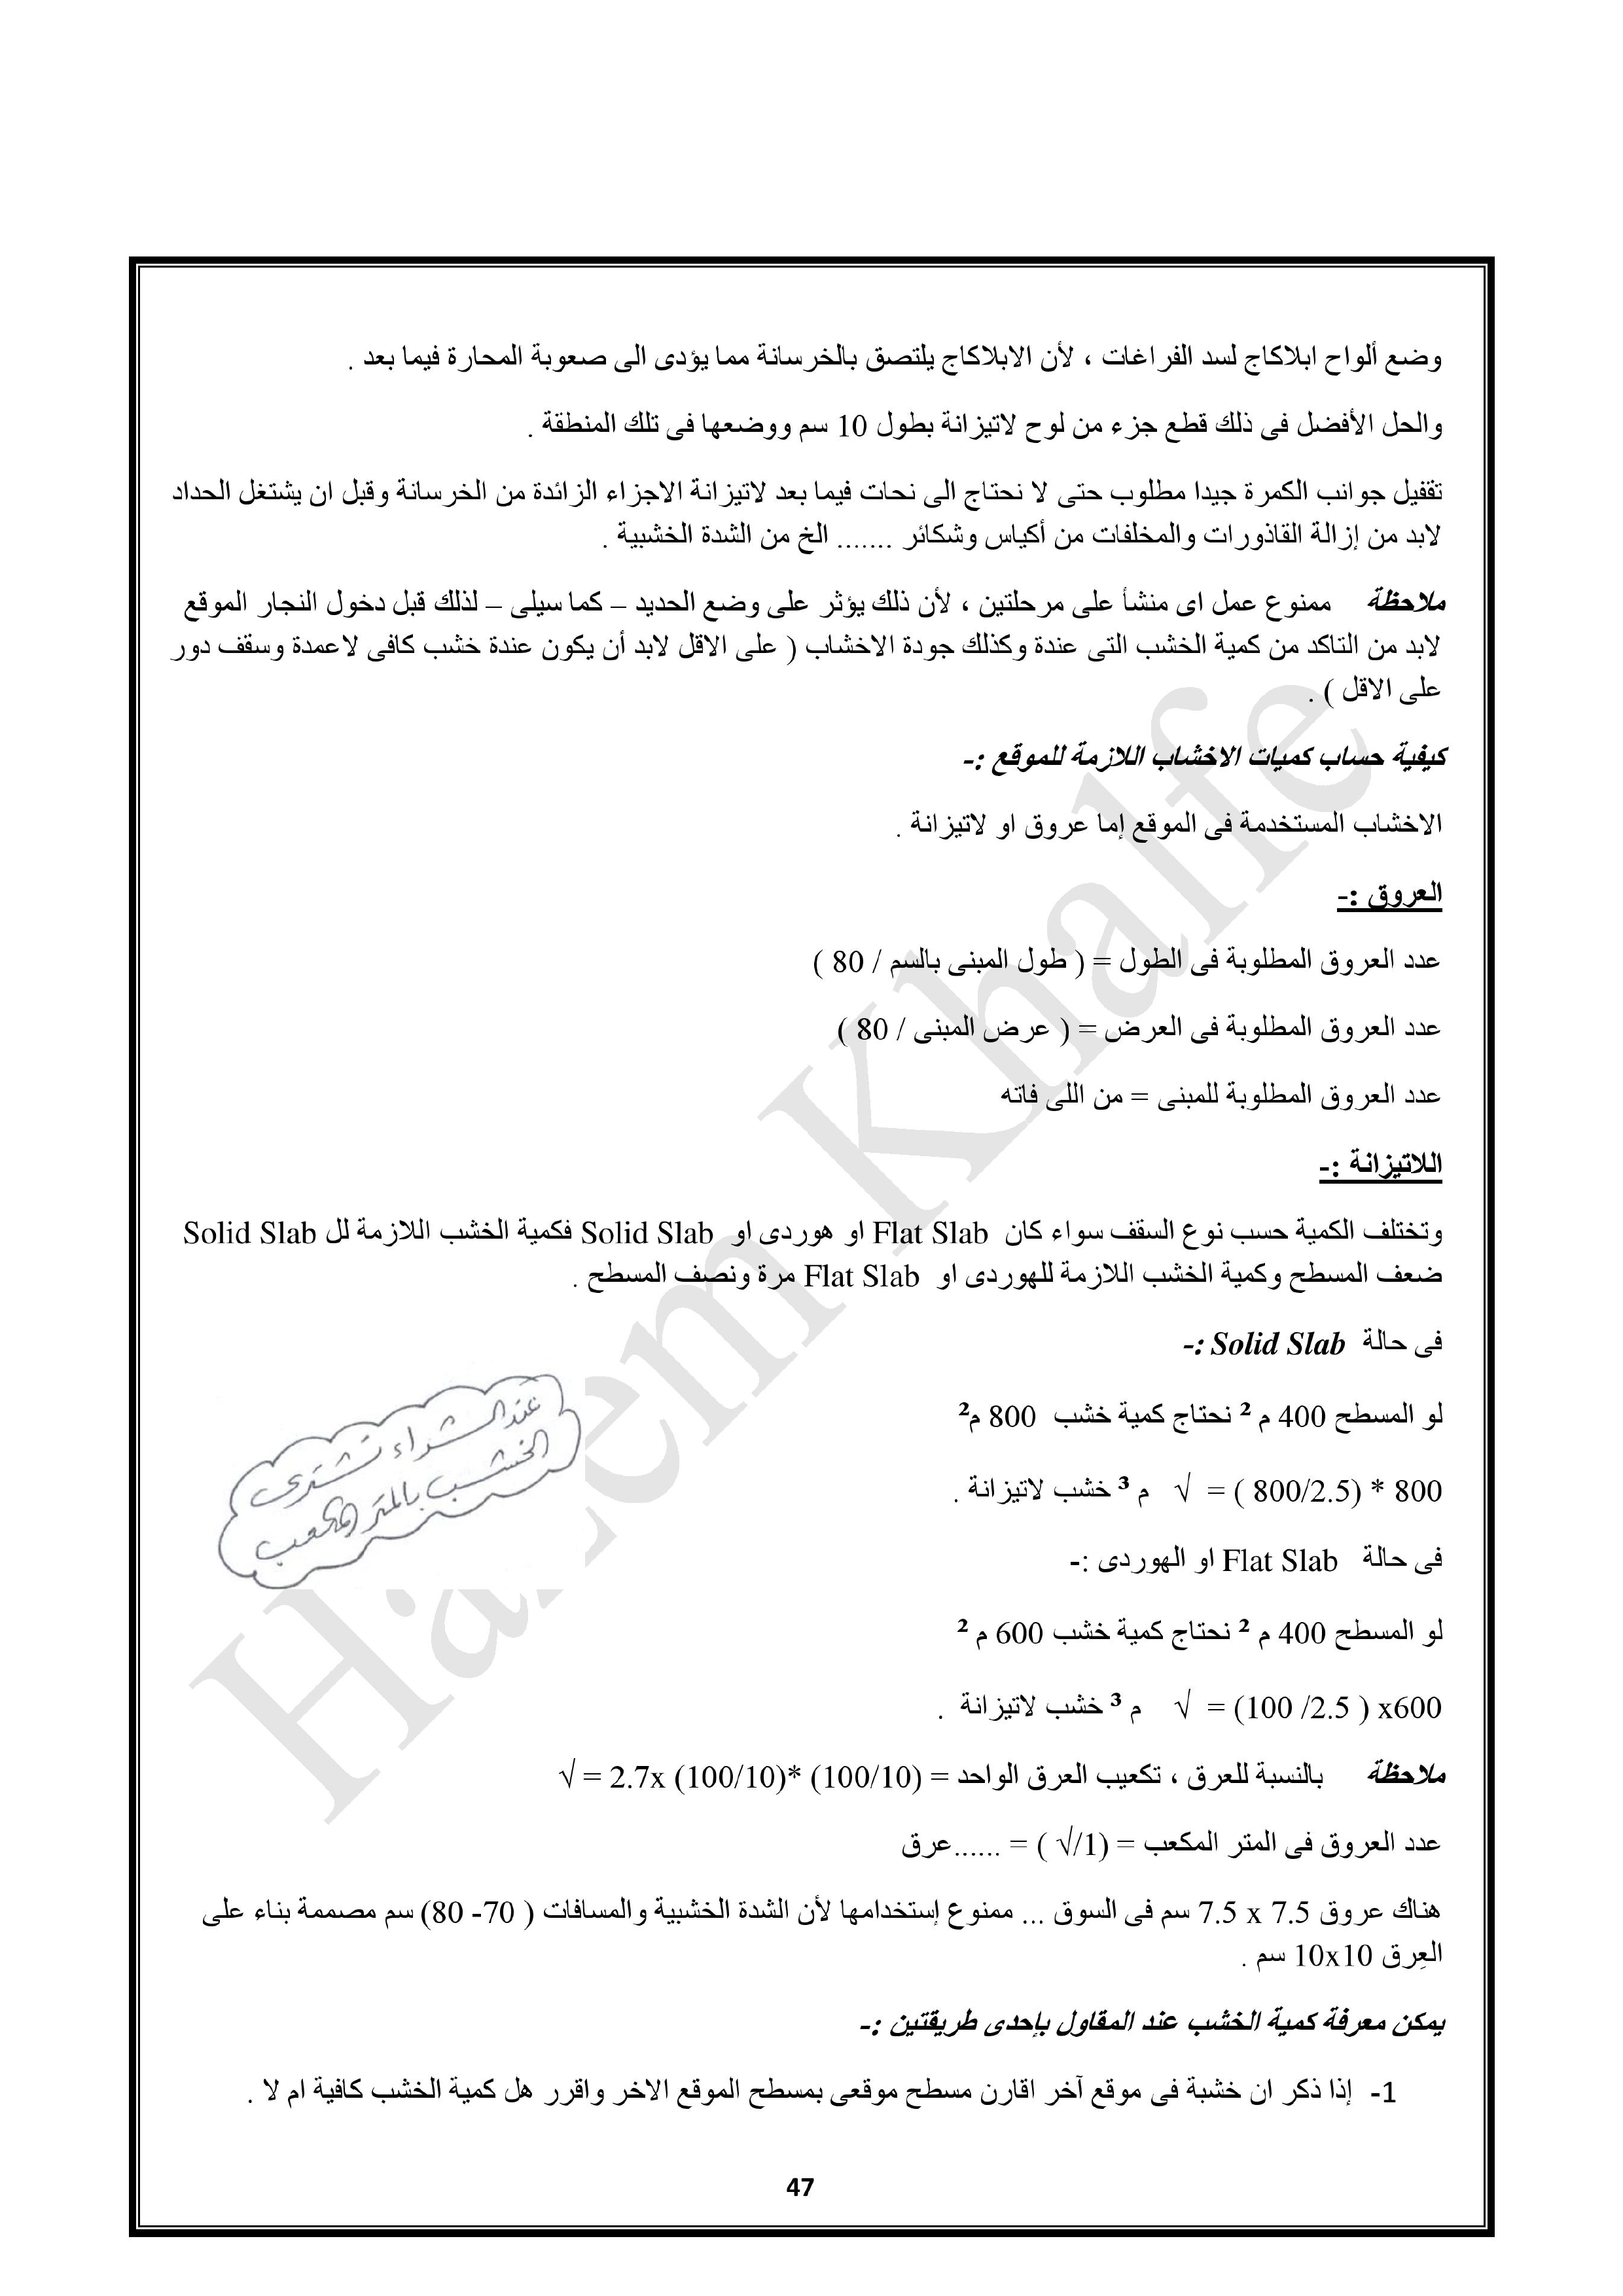 وضع ألواح ابلاكاج لسد الفراغات ، لأن الابلاكاج يلتصق بالخرسانة مما يؤدى الى صعوبة المحارة فيما بعد .
والحل الأفضل فى ذلك قطع جزء من لوح لاتيزانة بطول 10 سم ووضعها فى تلك المنطقة .
تقفيل جوانب الكمرة جيدا مطلوب حتى لا نحتاج الى نحات فيما بعد لاتيزانة الاجزاء الزائدة من الخرسانة وقبل ان يشتغل الحداد
لابد من إزالة القاذورات والمخلفات من أكياس وشكائر ....... الخ من الشدة الخشبية .
ملاحظة ممنوع عمل اى منشأ على مرحلتين ، لأن ذلك يؤثر على وضع الحديد – كما سيلى – لذلك قبل دخول النجار الموقع
لابد من التاكد من كمية الخشب التى عندة وكذلك جودة الاخشاب ( على الاقل لابد أن يكون عندة خشب كافى لاعمدة وسقف دور
على الاقل ) .
كيفية حساب كميات الاخشاب اللازمة للموقع :-
الاخشاب المستخدمة فى الموقع إما عروق او لاتيزانة .
العروق :-
عدد العروق المطلوبة فى الطول = ( طول المبنى بالسم / 80 )
عدد العروق المطلوبة فى العرض = ( عرض المبنى / 80 )
عدد العروق المطلوبة للمبنى = من اللى فاته
اللاتيزانة :-
وتختلف الكمية حسب نوع السقف سواء كان Flat Slab او هوردى او Solid Slab فكمية الخشب اللازمة لل Solid Slab
ضعف المسطح وكمية الخشب اللازمة للهوردى او Flat Slab مرة ونصف المسطح .
فى حالة Solid Slab :-
لو المسطح 400 م ² نحتاج كمية خشب 800 م²
800 * (800/2.5 ) = √ م ³ خشب لاتيزانة .
عند الشراء نشترى
الخشب بالمتر المكعب
فى حالة Flat Slab او الهوردى :-
لو المسطح 400 م ² نحتاج كمية خشب 600 م ²
x600 ( 2.5 /100) = √ م ³ خشب لاتيزانة .
ملاحظة بالنسبة للعرق ، تكعيب العرق الواحد = (100/10) *(100/10) 2.7x = √
عدد العروق فى المتر المكعب = (1/√ ) = ......عرق
هناك عروق 7.5 x 7.5 سم فى السوق ... ممنوع إستخدامها لأن الشدة الخشبية والمسافات ( 70- 80) سم مصممة بناء على
العِرق 10x10 سم .
يمكن معرفة كمية الخشب عند المقاول بإحدى طريقتين :-
1- إذا ذكر ان خشبة فى موقع آخر اقارن مسطح موقعى بمسطح الموقع الاخر واقرر هل كمية الخشب كافية ام لا .
47
Hazem Khalfe